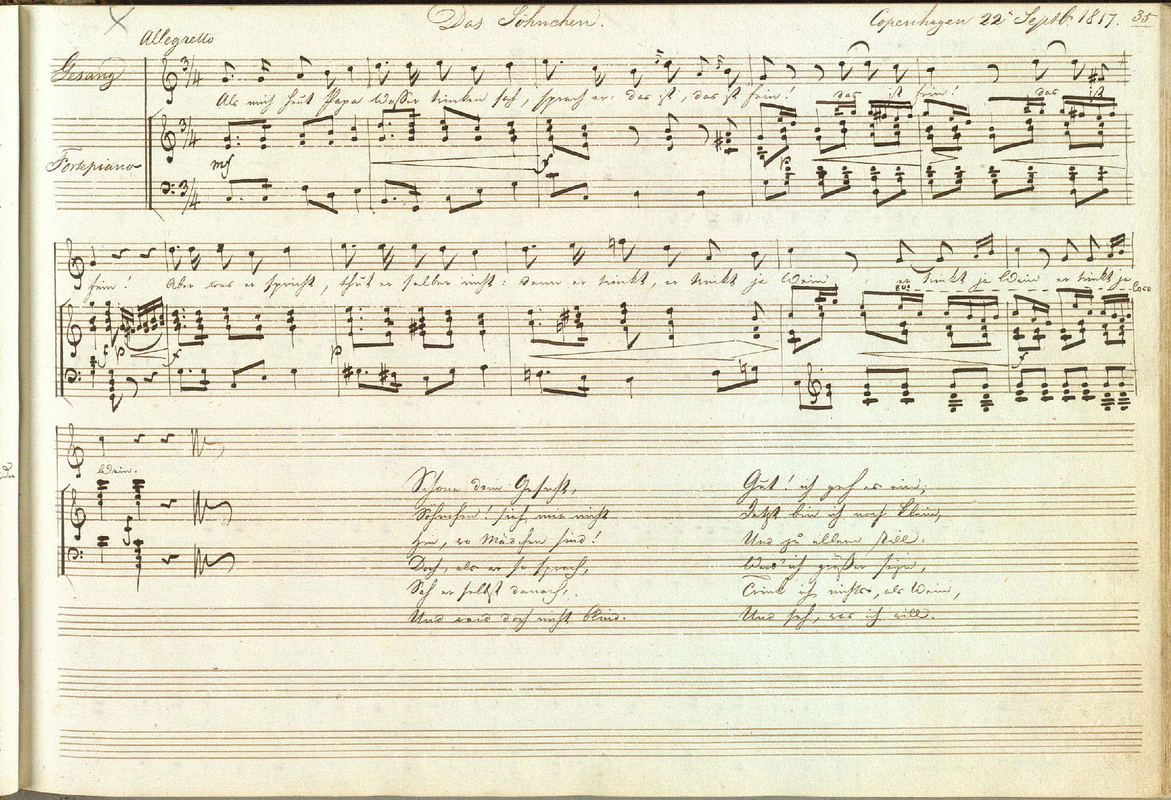 Das Söhnchen.
Copenhagen 22ᵗ Septb. 1817. 35
Allegretto
Gesang
Als mich heut Papa Wasser trinken sah, sprach er: das ist, das ist fein! das ist fein! das ist
Fortepiano
mf
f
p
fein! Aber was er spricht, thut er selber nicht: denn er trinkt, er trinkt ja Wein er trinkt ja Wein er trinkt ja
8va loco
f p f p f
Wein.
Schone dein Gesicht,
Söhnchen! sieh mir nicht
Hin, wo Mädchen sind!
Doch, als er so sprach,
Sah er selbst danach,
Und ward doch nicht blind.
Gut! ich geh es ein;
Jetzt bin ich noch klein,
Und zu allem still:
Werd' ich größer seyn,
Trink ich nichts, als Wein,
Und seh, was ich will.